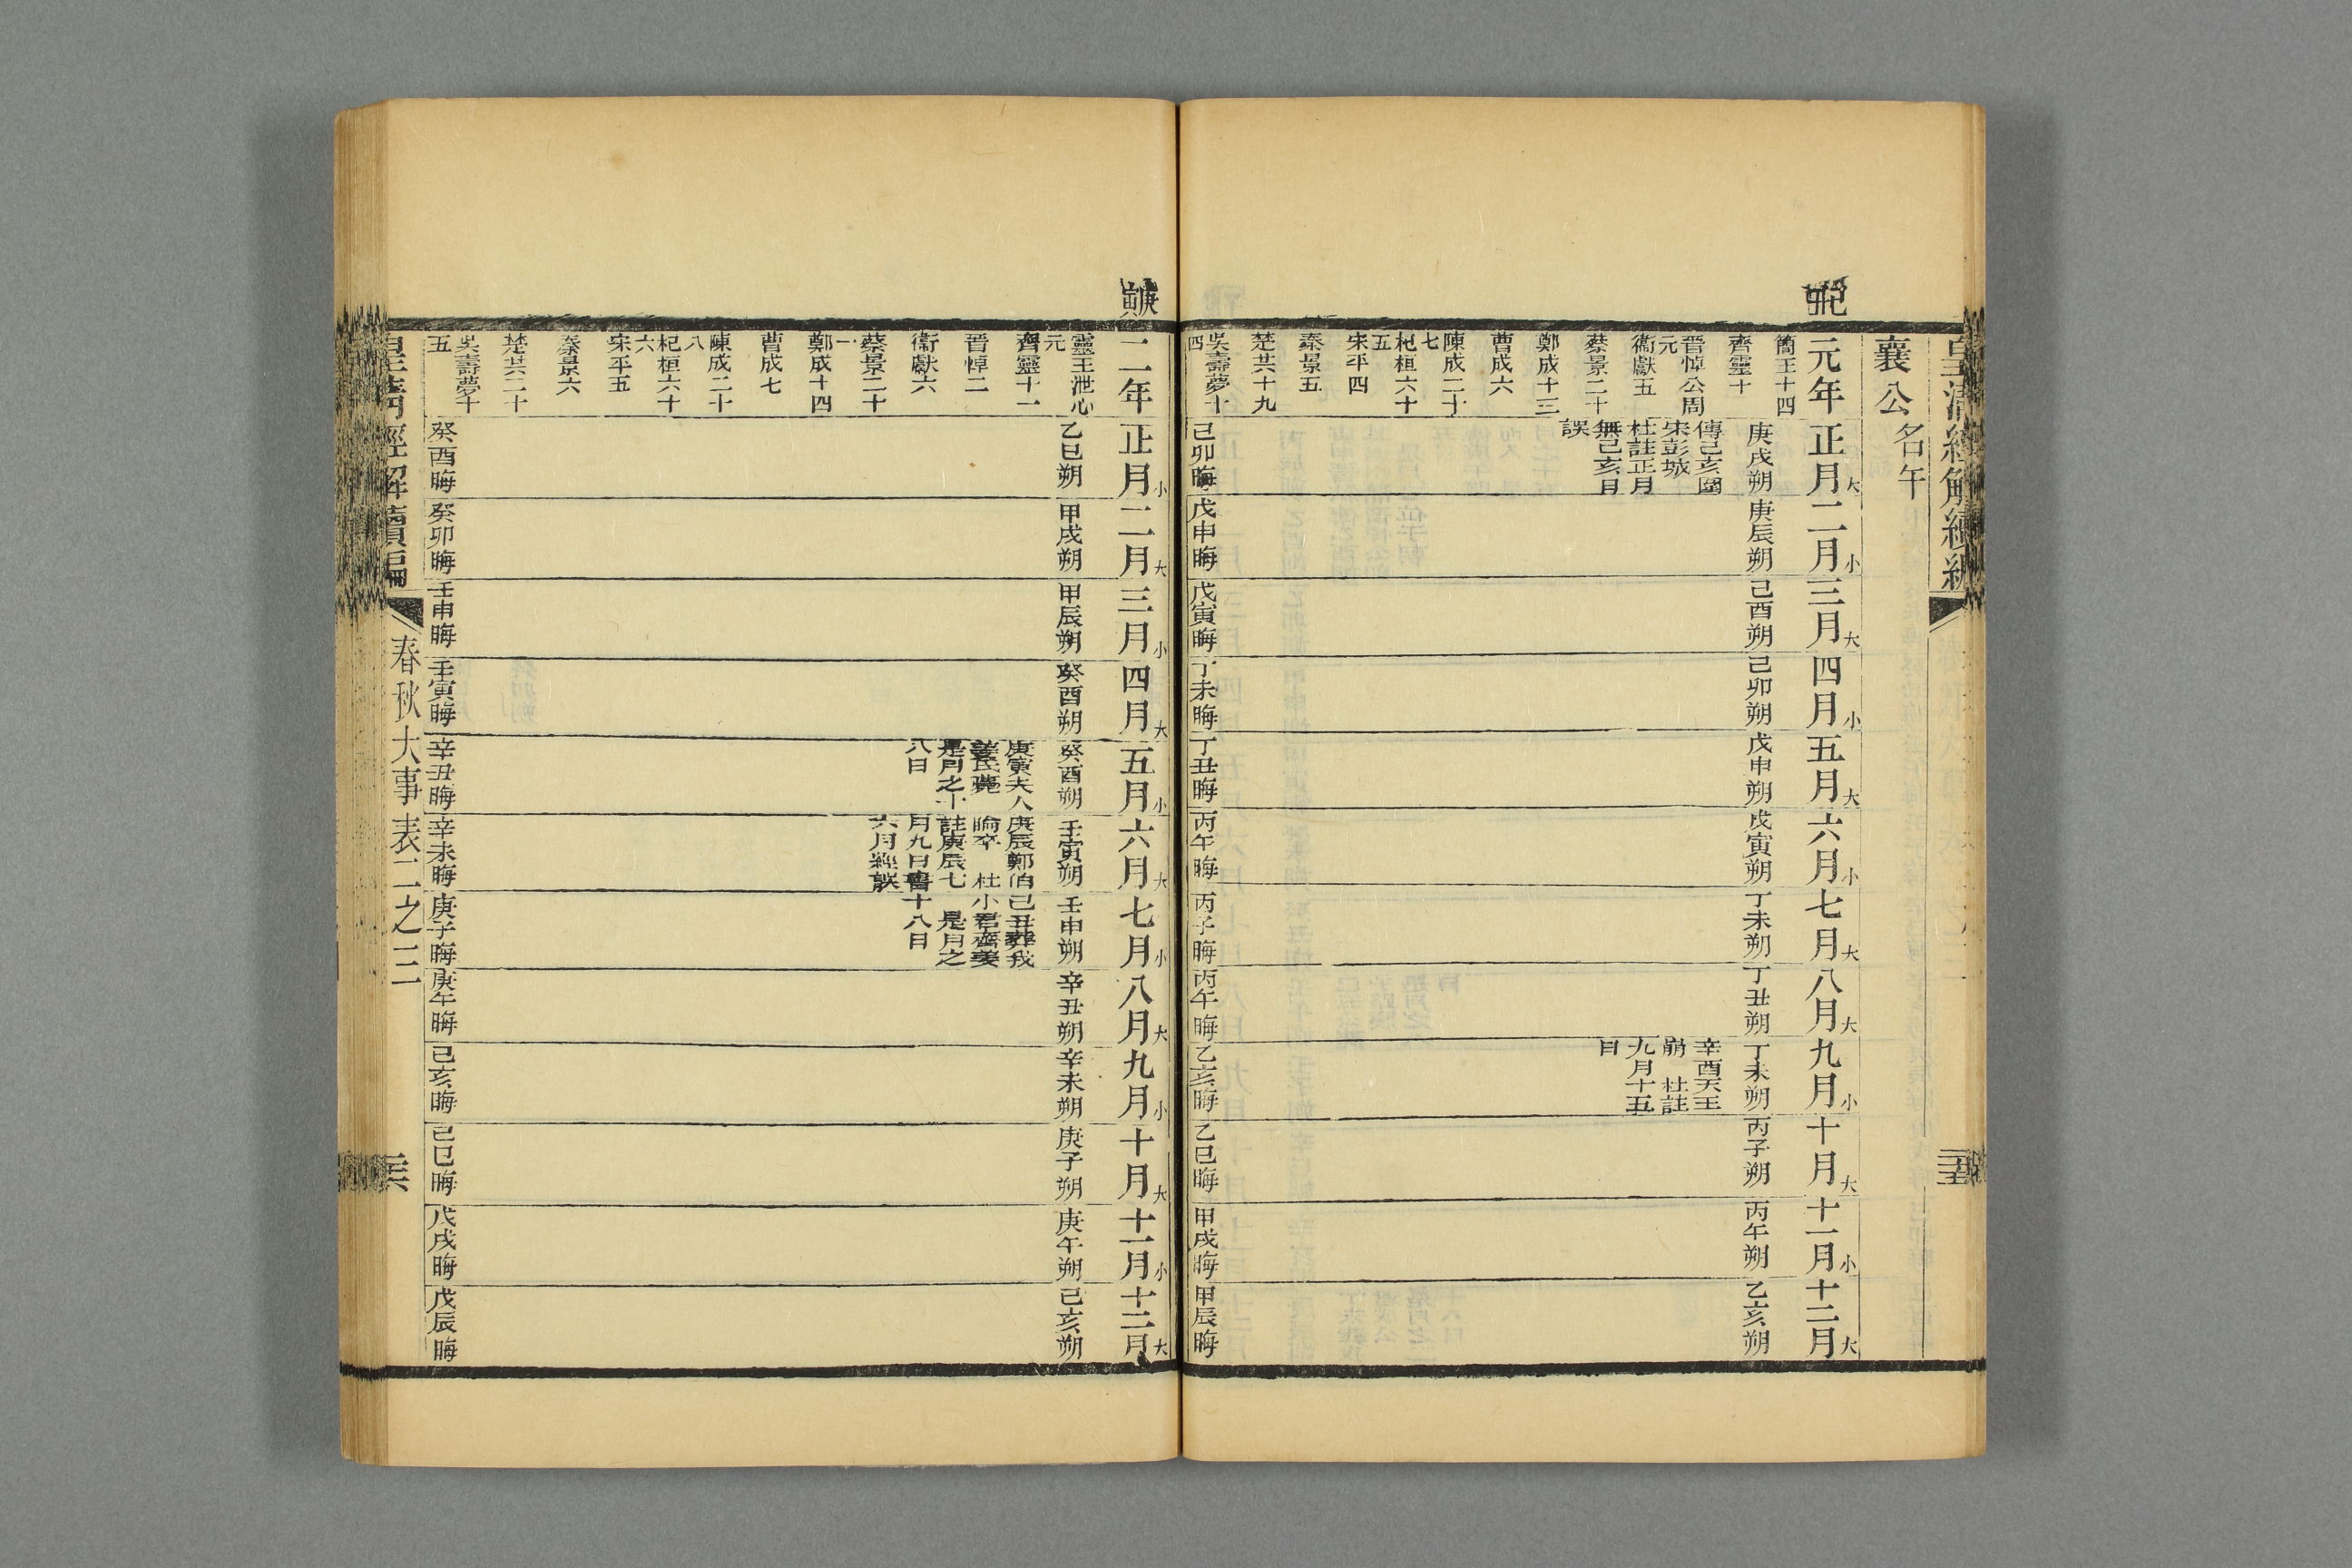 皇清經解續編
襄公名午
己酉
元年
簡王十四
齊靈十
晉悼公周元
衞獻五
蔡景二十
鄭成十三
曹成六
陳成二十七
杞桓六十五
宋平四
秦景五
楚共十九
吳壽夢十四
正月大
庚戌朔
傳己亥圍
宋彭城
杜註正月
無己亥日
誤
己卯晦
二月小
庚辰朔
戊申晦
三月大
己酉朔
戊寅晦
四月小
己卯朔
丁未晦
五月大
戊申朔
丁丑晦
六月小
戊寅朔
丙午晦
七月大
丁未朔
丙子晦
八月大
丁丑朔
丙午晦
九月小
丁未朔
辛酉天王
崩 杜註
九月十五
日
乙亥晦
十月大
丙子朔
乙巳晦
十一月小
丙午朔
甲戌晦
十二月大
乙亥朔
甲辰晦
庚寅
二年
靈王泄心元
齊靈十一
晉悼二
衞獻六
蔡景二十一
鄭成十四
曹成七
陳成二十八
杞桓六十六
宋平五
秦景六
楚共二十
吳壽夢十五
正月小
乙巳朔
癸酉晦
二月大
甲戌朔
癸卯晦
三月小
甲辰朔
壬申晦
四月大
癸酉朔
壬寅晦
五月小
癸酉朔
庚寅夫人
姜氏薨
是月之十
八日
辛丑晦
六月大
壬寅朔
庚辰鄭伯
睔卒 杜
註庚辰七
月九日書
六月經誤
辛未晦
七月小
壬申朔
己丑葬我
小君齊姜
是月之
十八日
庚子晦
八月大
辛丑朔
庚午晦
九月小
辛未朔
己亥晦
十月大
庚子朔
己巳晦
十一月小
庚午朔
戊戌晦
十二月大
己亥朔
戊辰晦
皇清經解續編
春秋大事表二之三